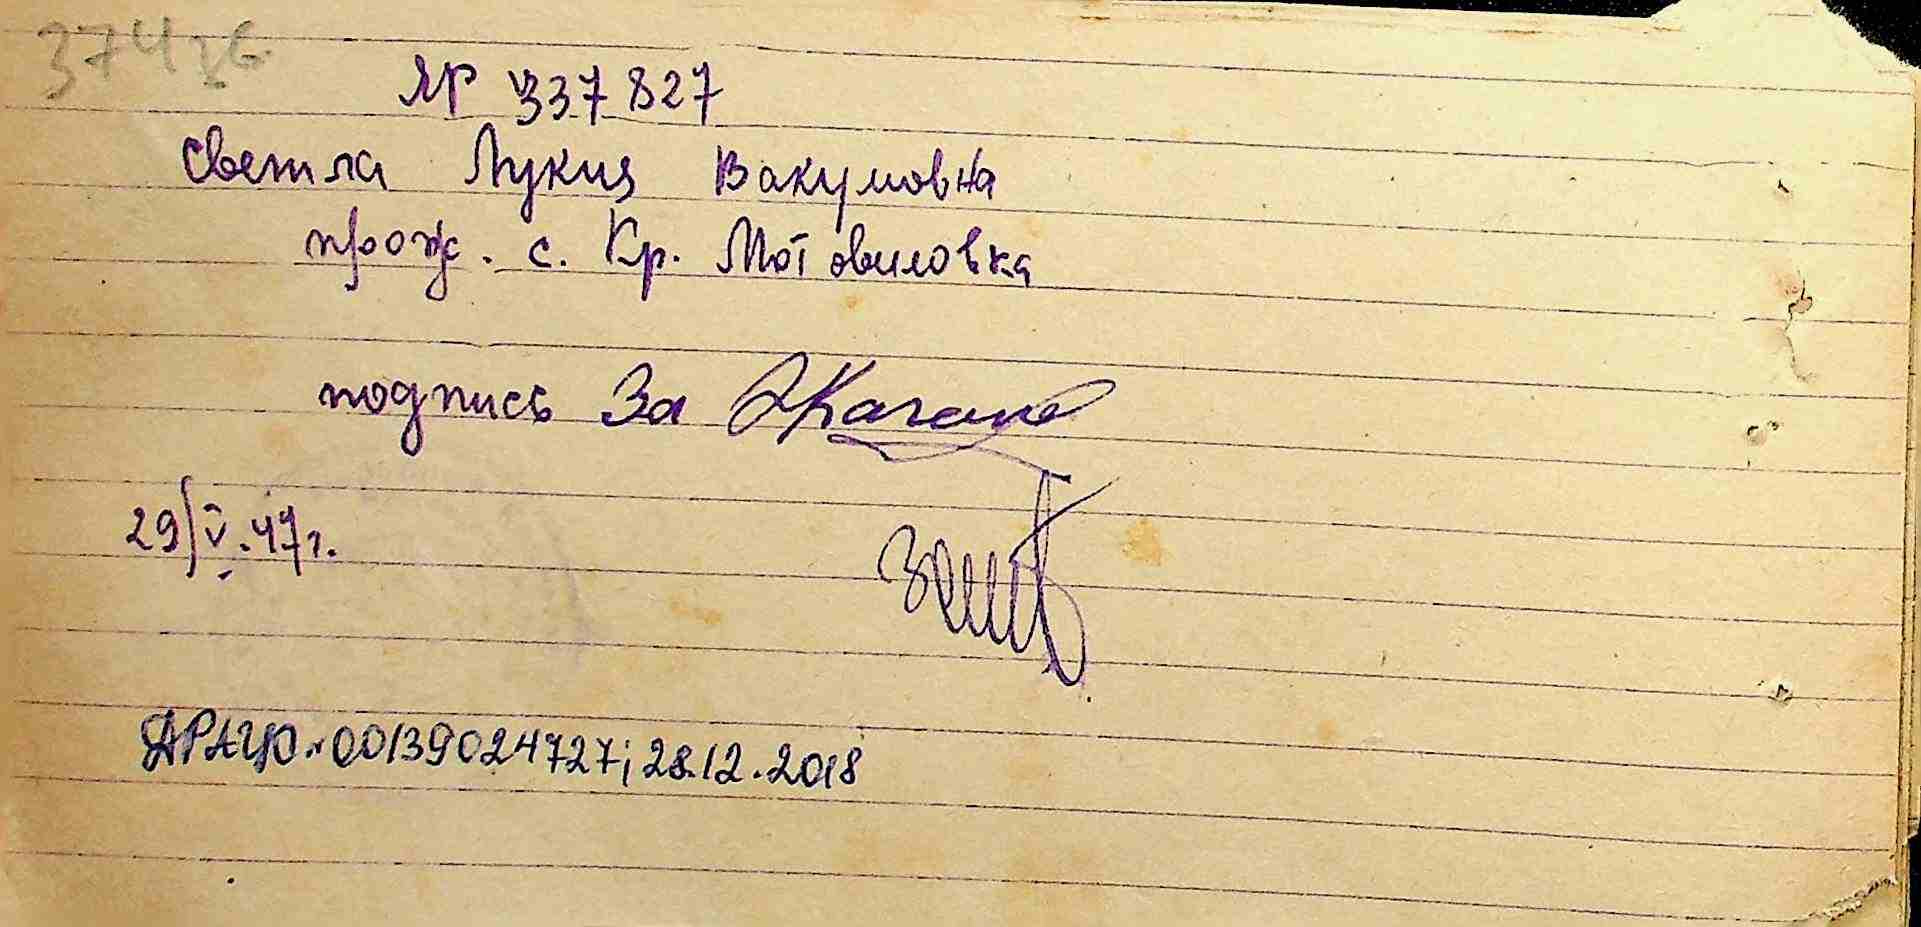 374
ЯР 337827
Светла Лукия Вакумовна
прож. с. Кр. Мотовиловка
подпись За
29/V.47г.
ДРАЦС. 00139024727; 28.12.2018